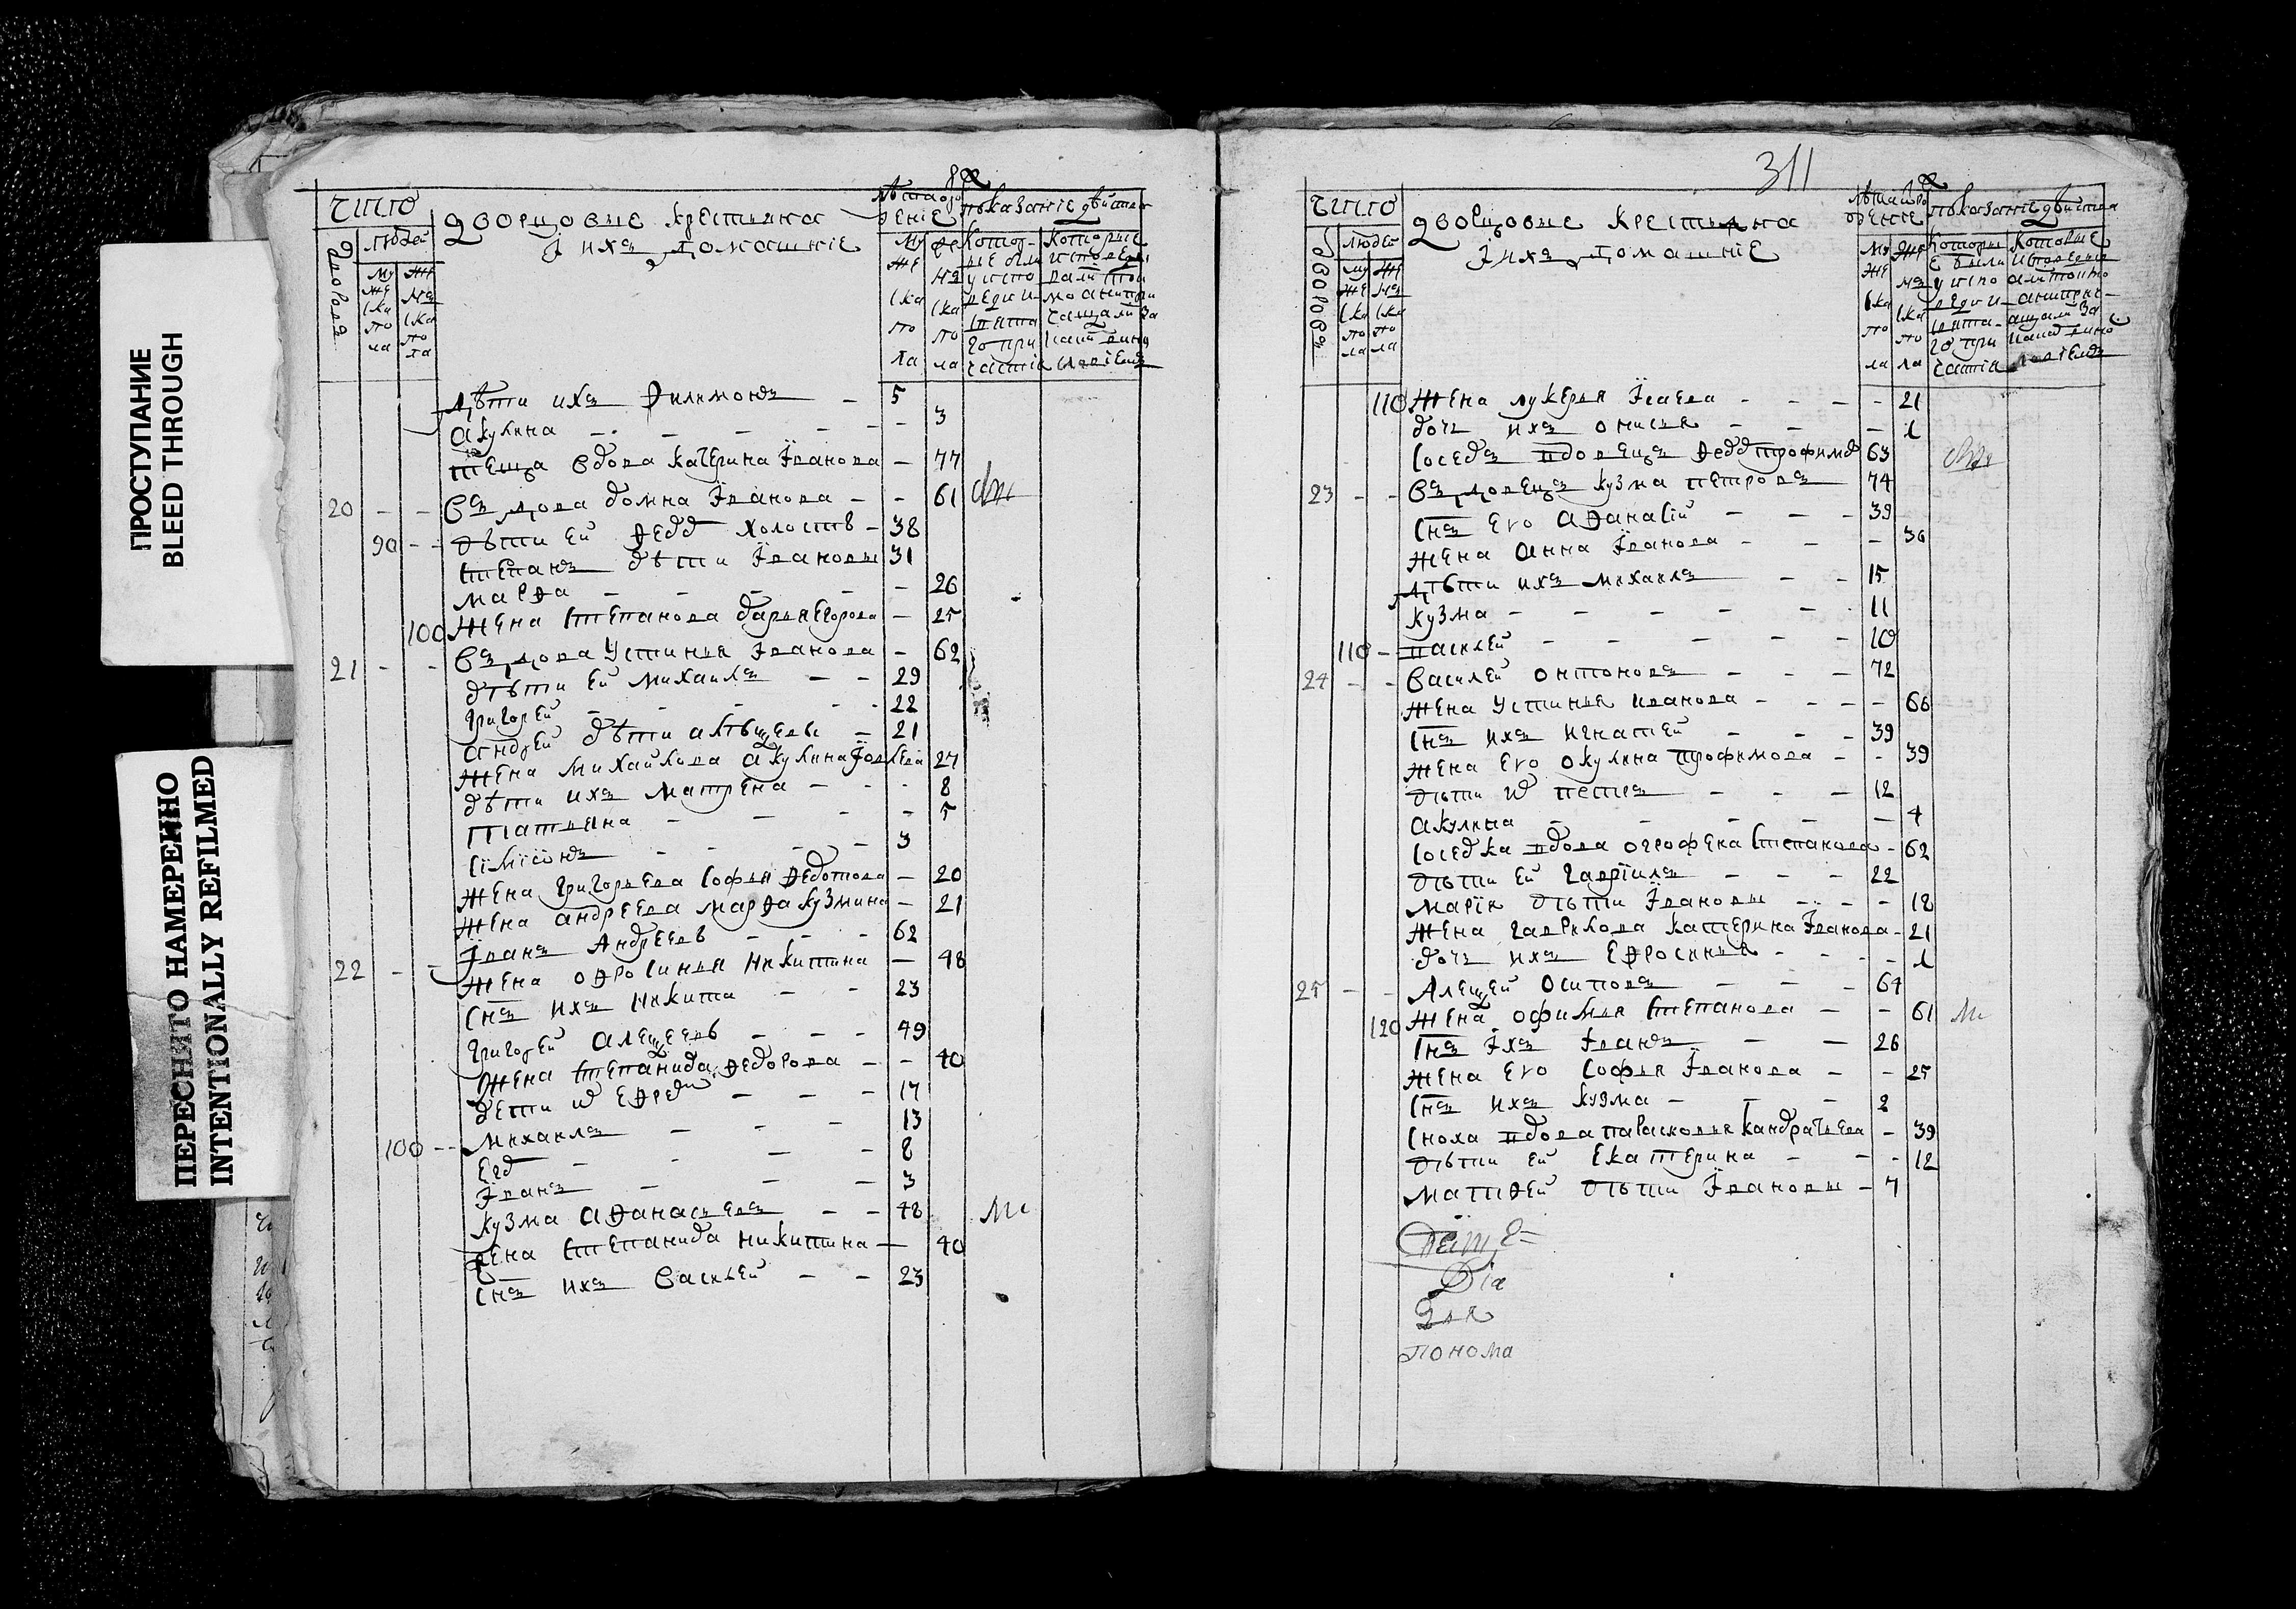 ПРОСТУПАНИЕ
BLEED THROUGH
ПЕРЕСНЯТО НАМЕРЕННО
INTENTIONALLY REFILMED
число
дворовъ
людей
му
же
ска
по
ла
же
нъ
ска
по
ла
дворцовые крестьяна
I ихъ домашнiе
дѣти ихъ Филимонъ - 5
акулина - 3
теща вдова катерина Iванова - 77
20 - - въдова домна Iванова - - 61
90 - - дѣти ей Ѳедо холостъ - 38
степанъ дѣти Iвановы 31
марѳа - 26
100 жена степанова дарья Егорова - 25
21 - - въдова Устинья Iванова - 62
дѣти ей михаилъ - - 29
григорей - 22
андрей дѣти алѣщевы - 21
жена михайлова акулина Iовлева 27
дѣти ихъ матрена - - 8
татьяна - 5
сiмiонъ - 3
жена григорьева софья Ѳедотова - 20
жена андреева марѳа кузмина - 21
22 - - Iванъ Андреевъ - 62
жена оѳросинья никитина - 48
снъ ихъ никита - - 23
григорей алещеевъ - - - 49
жена степанида Ѳедорова - - 40
дети их Ефредъ - - - 17
100 - - михаилъ - 13
Егд - 8
Iванъ - 3
кузма аѳанасьевъ - - 48
жена степанида никитина - 40
снъ ихъ василей - - 23
311
число
дворовъ
людей
му
же
ска
по
ла
же
нъ
ска
по
ла
дворцовые крестьяна
I ихъ домашнiе
110 жена лукерья Iсаева - - - - 21
дочь ихъ онисья - 1
соседъ вдовецъ Ѳедо трофимов 63
23 - - въдовецъ кузма петровъ 74
снъ Его аѳанасiй - - - 39
жена анна Iванова - - - 36
дѣти ихъ михаилъ - - 15
кузма - 11
110 - василей - 10
24 - - василей онтоновъ - - - 72
жена устинья иванова - - - - 66
снъ ихъ игнатей - - - 39
жена Его окулина трофимова - - 39
дѣти их петръ - - - 12
акулина - 4
соседка вдова огрофена степанова - 62
дѣти ей гаврiилъ - - - 22
марiя дѣти Iвановы - - - - 18
жена гаврилова катерина Iванова - 21
дочь ихъ Ефросинья - - - - 1
25 - - Алещей осиповъ - - - 64
120 жена офимья степанова - - 61
снъ Iхъ Iванъ - - 26
жена Его софья Iванова - - 25
снъ ихъ кузма - 2
сноха вдова парасковья кандратьева - 39
дѣти ей Екатерина - - - 12
матѳей дѣти Iвановы - 7
Дiа
понома